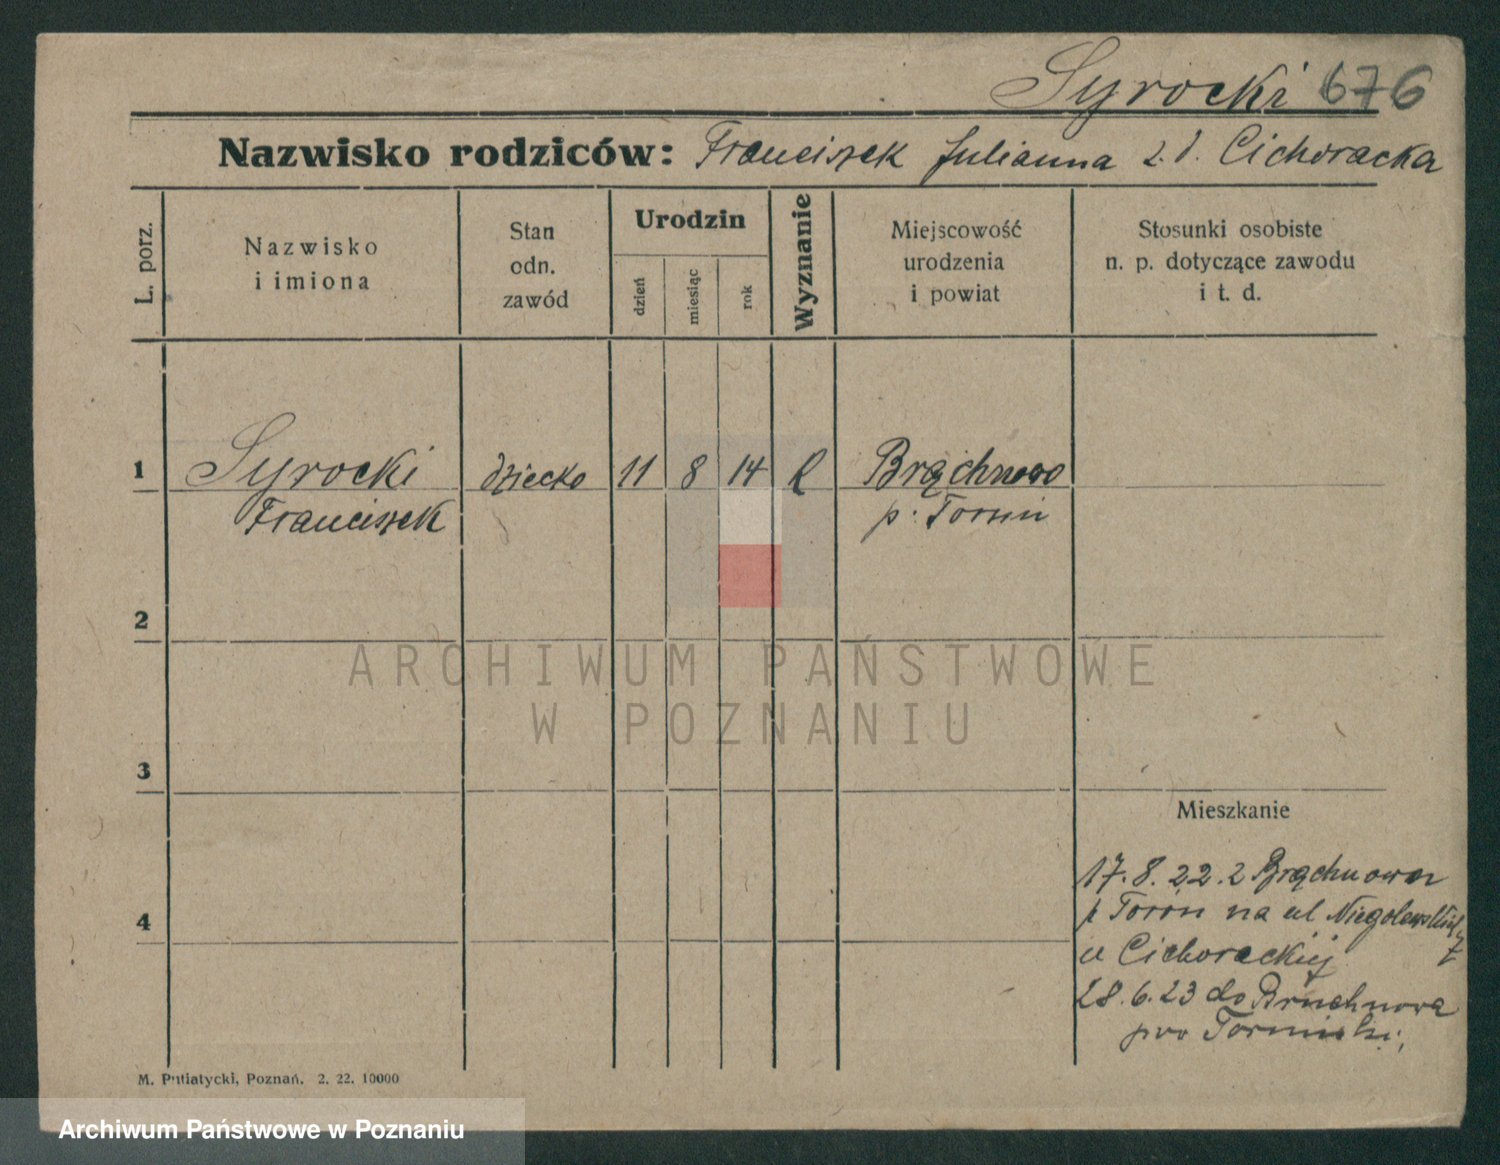 Syrocki 676
Nazwisko rodziców: Franciszek Julianna z. d. Cichoracka
L. porz.
Nazwisko
i imiona
Stan
odn.
zawód
Urodzin
dzień
miesiąc
rok
Wyznanie
Miejscowość
urodzenia
i powiat
Stosunki osobiste
n. p. dotyczące zawodu
i t. d.
1 Syrocki dziecko 11 8 14 R Brąchnowo
Franciszek p. Toruń
2
ARCHIWUM PAŃSTWOWE
W POZNANIU
3
Mieszkanie
17. 8. 22. z Brąchnowa
p Toruń na ul Niegolewskich
7
4
u Cichorackiej
28. 6. 23 do Bruchnowa
pow Toruński,
M. Putiatycki, Poznań. 2. 22. 10000
Archiwum Państwowe w Poznaniu